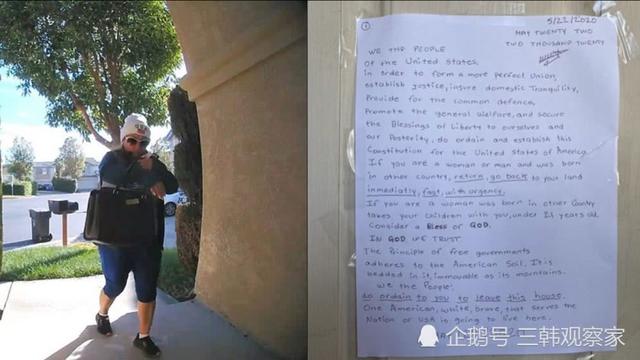 1
5/22/2020
MAY TWENTY TWO
TWO THOUSAND TWENTY
WE THE PEOPLE
Of the United States,
in order to form a more perfect Union,
establish justice, insure domestic Tranquility,
Provide for the common defence,
Promote the general Welfare, and secure
the Blessings of Liberty to ourselves and
our Posterity, do ordain and establish this
Constitution for the United States of America
If you are a woman or man and was born
in other country, return, go back to your land
inmediatly, fast, with urgency.
If you are a woman was born in other Country
takes your children with you, under 21 years old.
Consider a Bless of GOD.
IN GOD WE TRUST
The Principle of free governments
adheres to the American Soil. It is
bedded in it, immovable as its mountains.
We the People.
do ordain to you to leave this house.
One American, white, brave, that serves the
Nation or USA is going to live here.
企鹅号 三韩观察家